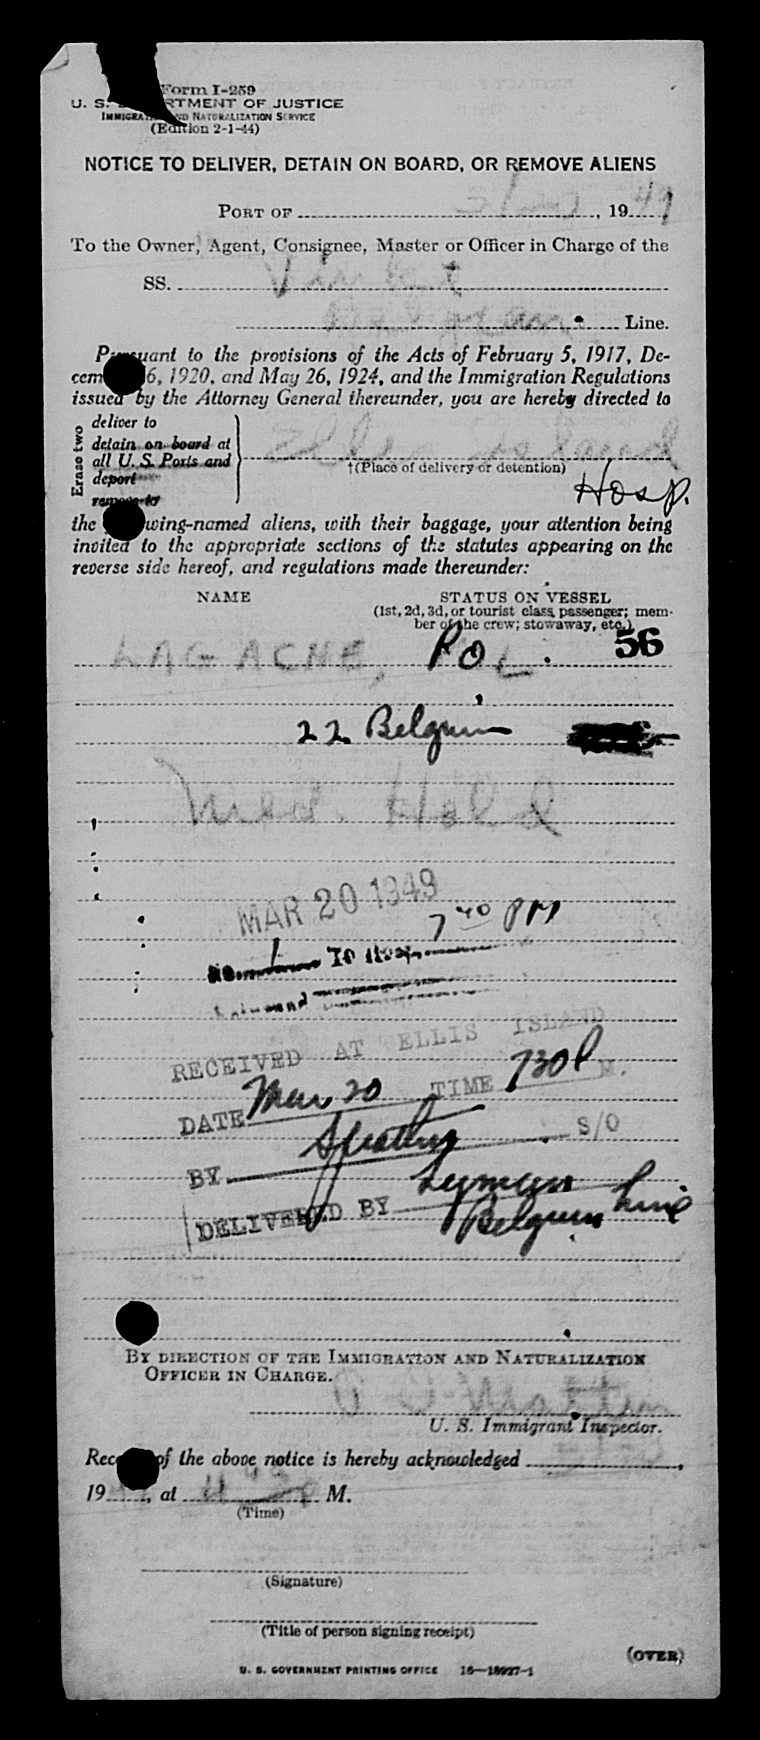 Form I-259
U. S. DEPARTMENT OF JUSTICE
IMMIGRATION AND NATURALIZATION SERVICE
(Edition 2-1-44)
NOTICE TO DELIVER, DETAIN ON BOARD, OR REMOVE ALIENS
PORT OF , 1949
To the Owner, Agent, Consignee, Master or Officer in Charge of the
SS.
Belgian Line.
Pursuant to the provisions of the Acts of February 5, 1917, De-
cember 26, 1920, and May 26, 1924, and the Immigration Regulations
issued by the Attorney General thereunder, you are hereby directed to
Erase two
deliver to
detain on board at
all U. S. Ports and
deport
remove to
Ellis Island
†(Place of delivery or detention)
Hosp.
the following-named aliens, with their baggage, your attention being
invited to the appropriate sections of the statutes appearing on the
reverse side hereof, and regulations made thereunder:
NAME STATUS ON VESSEL
(1st, 2d, 3d, or tourist class passenger; mem-
ber of the crew; stowaway, etc.)
LAGACHE, POL. 56
22 Belgium
Med. Hold
MAR 20 1949
7 40 PM
To Hosp.
RECEIVED AT ELLIS ISLAND
DATE Mar 20 TIME 730 P M.
BY S/O
DELIVERED BY Lyman
Belgium Line
BY DIRECTION OF THE IMMIGRATION AND NATURALIZATION
OFFICER IN CHARGE.
U. S. Immigrant Inspector.
Receipt of the above notice is hereby acknowledged ,
19 , at M.
(Time)
(Signature)
(Title of person signing receipt)
(OVER)
U. S. GOVERNMENT PRINTING OFFICE 16—18927-1